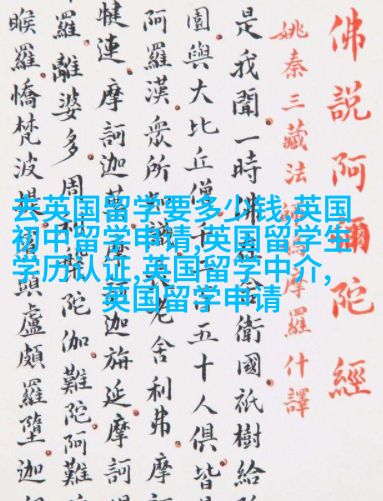 佛說阿彌陀經
姚秦三藏法師鳩摩羅什譯
是我聞一時佛在舍衛國祇樹給
園與大比丘僧千二百五十人俱皆
阿羅漢眾所知識長老舍利弗摩
犍連摩訶迦葉摩訶迦旃延摩訶
羅離婆多周利槃陀伽難陀阿難
睺羅憍梵波提賓頭盧頗羅墮迦
去英国留学要多少钱,英国
初中留学申请,英国留学生
学历认证,英国留学中介,
英国留学申请